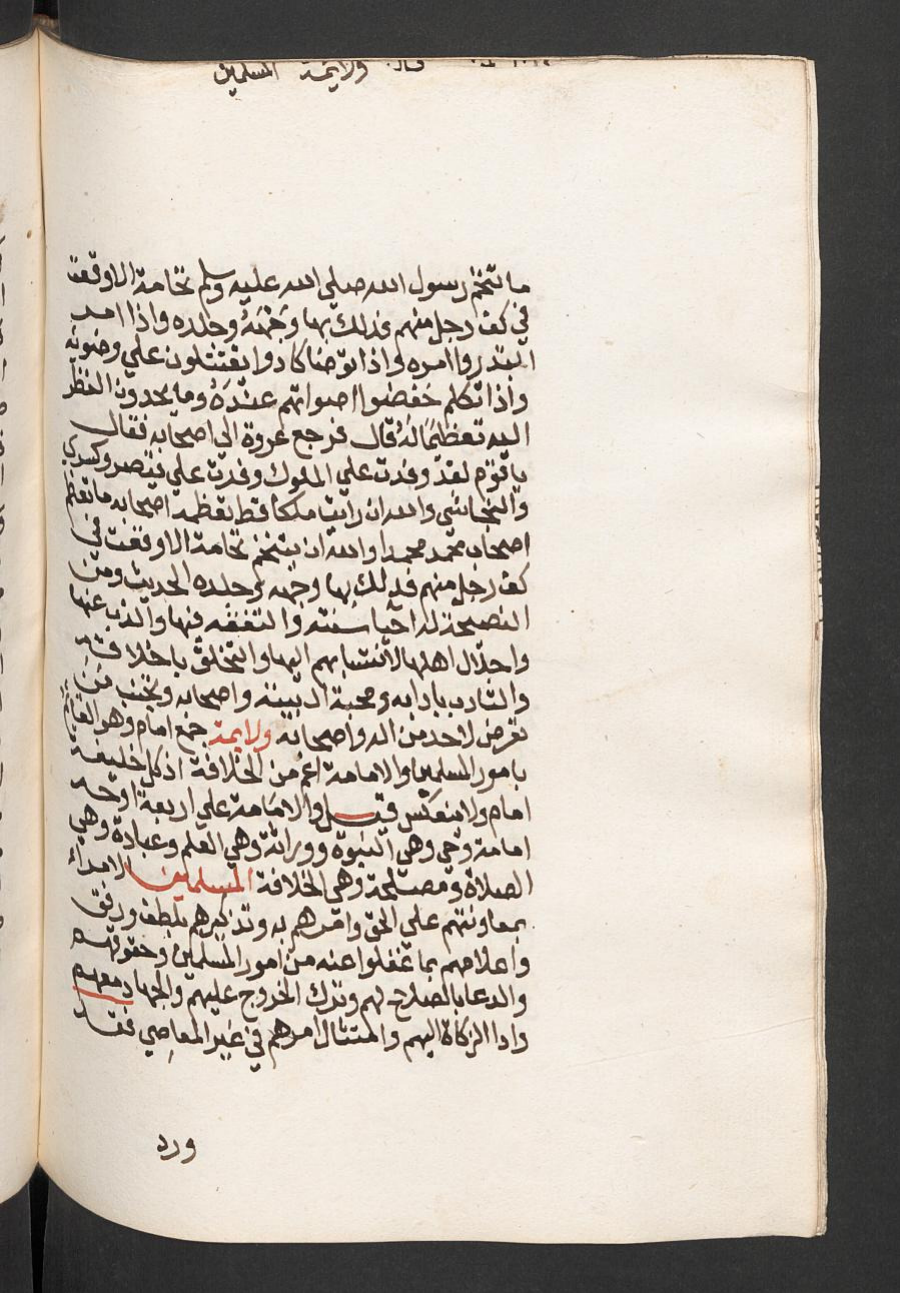 قال ولايمة المسلمين
ما تنخم رسول الله صلي الله عليه وسلم نخامة الا وقعت
في كف رجل منهم فدلك بها وجهه وجلده واذا امر
ابتدروا امره واذا توضا كادوا يقتتلون علي وضويه
واذا تكلم خفضوا اصواتهم عنده وما يحدون النظر
اليه تعظيما له قال فرجع عروة الي اصحابه فقال
يا قوم لقد وفدت علي الملوك وفدت علي قيصر وكسري
والنجاشي والله ان رايت ملكا قط يعظمه اصحابه ما تعظم
اصحاب محمد محمدا والله ان يتنخم نخامة الا وقعت في
كف رجل منهم فدلك بها وجهه وجلده الحديث ومن
النصيحة له احيا سنته والتفقه فيها والذب عنها
واجلال اهلها لانتسابهم اليها والتخلق باخلاقه
والتادب بادابه ومحبة ال بيته واصحابه وتجنب من
تعرض لاحد من اله واصحابه ولايمة جمع امام وهو القايم
بامور المسلمين والامامة اعم من الخلافة اذ كل خليفة
امام ولا ينعكس قيل والامامة علي اربعة اوجه
امامة وحي وهي النبوة ووراثة وهي العلم وعبادة وهي
الصلاة ومصلحة وهي الخلافة المسلمين لامراء
بمعاونتهم علي الحق وامرهم به وتذكيرهم بلطف ورفق
واعلامهم بما غفلوا عنه من امور المسلمين وحقوقهم
والدعا بالصلاح لهم وترك الخروج عليهم والجهاد معهم
وادا الزكاة اليهم وامتثال امرهم في غير المعاصي فقد
ورد